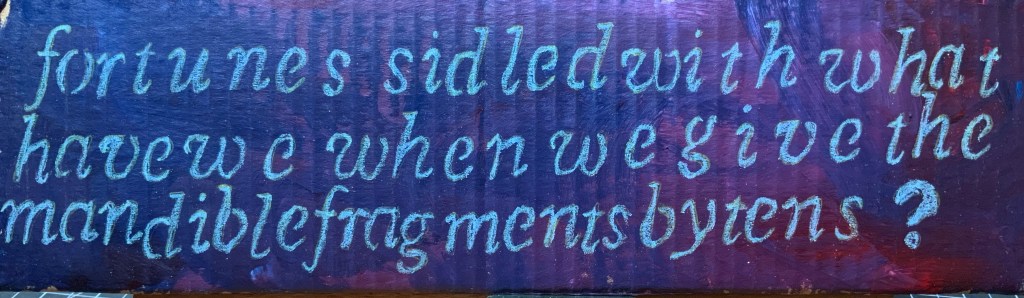 fortunes sidled with what
have we when we give the
mandible fragments by tens ?